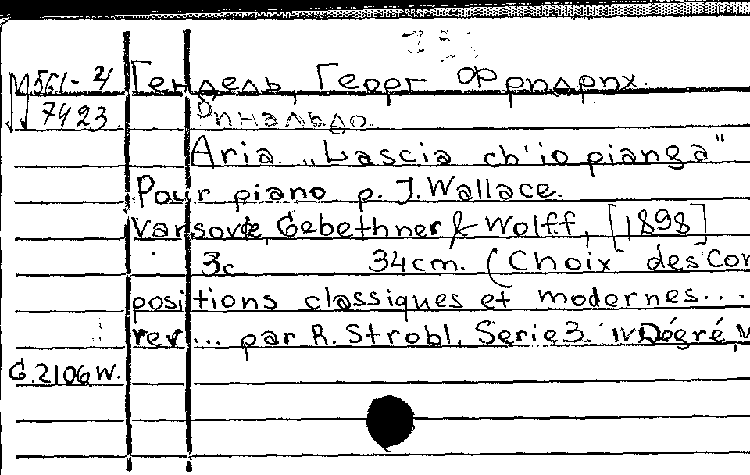 М561-4 Гендель, Георг Фридрих.
7423 Ринальдо.
Aria „Lascia ch'io pianga"
Pour piano p. J. Wallace.
Varsovie, Gebethner & Wolff, [1898]
3c 34cm. (Choix des Com
positions classiques et modernes...
rev... par R. Strobl. Serie 3. IV Dégré, N
G.2106W.